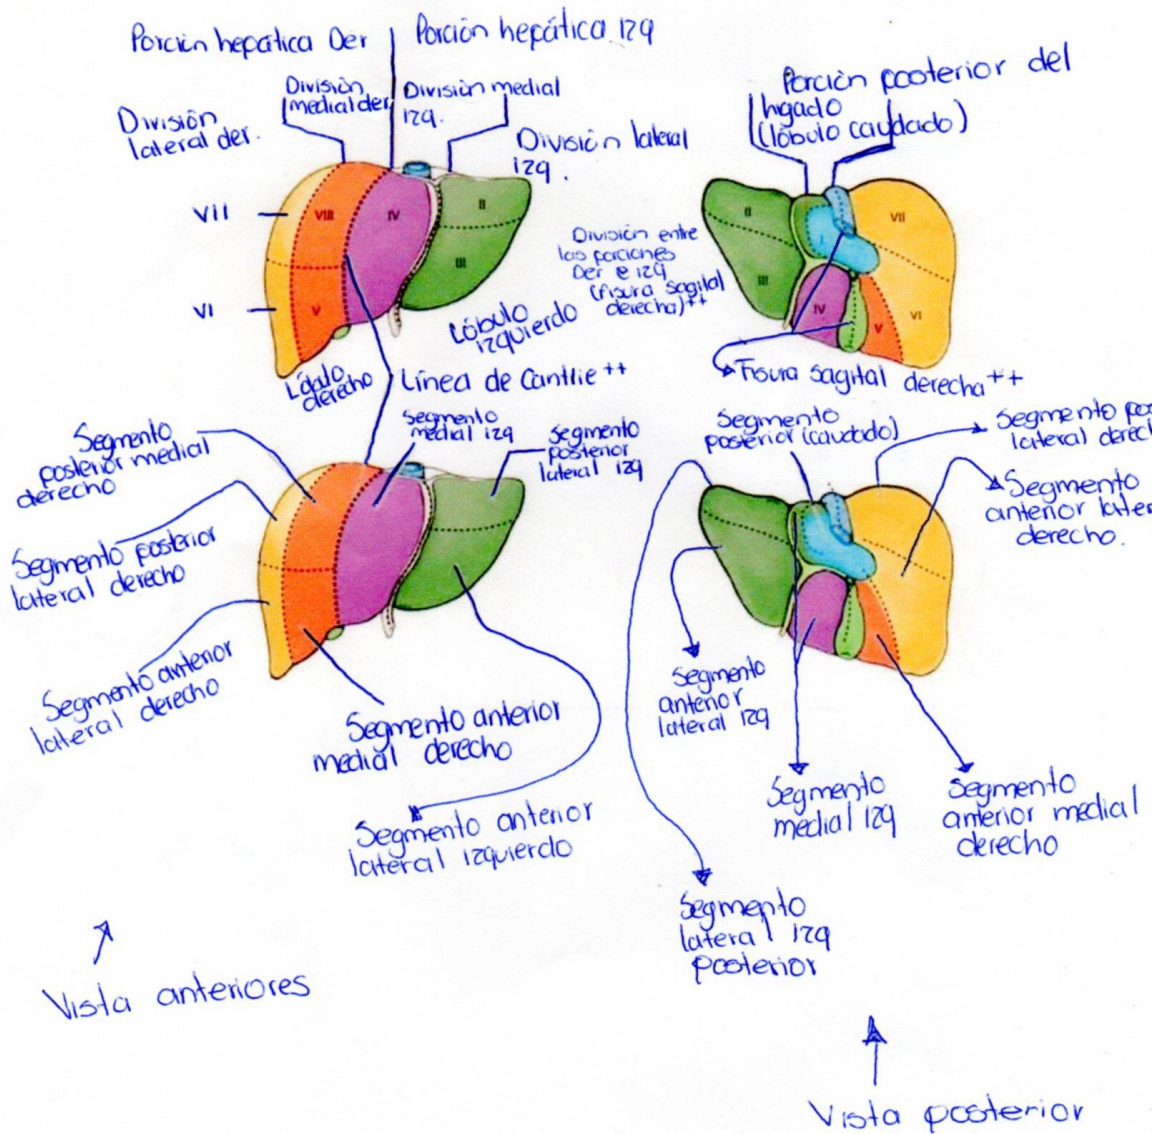 Porción hepática Der
Porción hepática izq
División
lateral der.
División
medial der.
División medial
izq.
División lateral
izq.
VII
VI
VIII
IV
II
III
V
Lóbulo
derecho
Lóbulo
izquierdo
Línea de Cantlie ++
Porción posterior del
hígado
(lóbulo caudado)
División entre
las porciones
Der e izq
(fisura sagital
derecha)++
II
III
I
IV
V
VI
VII
Fisura sagital derecha ++
Segmento
posterior medial
derecho
Segmento posterior
lateral derecho
Segmento anterior
lateral derecho
Segmento
medial izq
Segmento
posterior
lateral izq
Segmento anterior
medial derecho
Segmento anterior
lateral izquierdo
Segmento
posterior (caudado)
Segmento
lateral
Segmento
anterior
derecho.
Segmento
anterior
lateral izq
Segmento
medial izq
Segmento
anterior medial
derecho
Segmento
lateral izq
posterior
Vista anteriores
Vista posterior